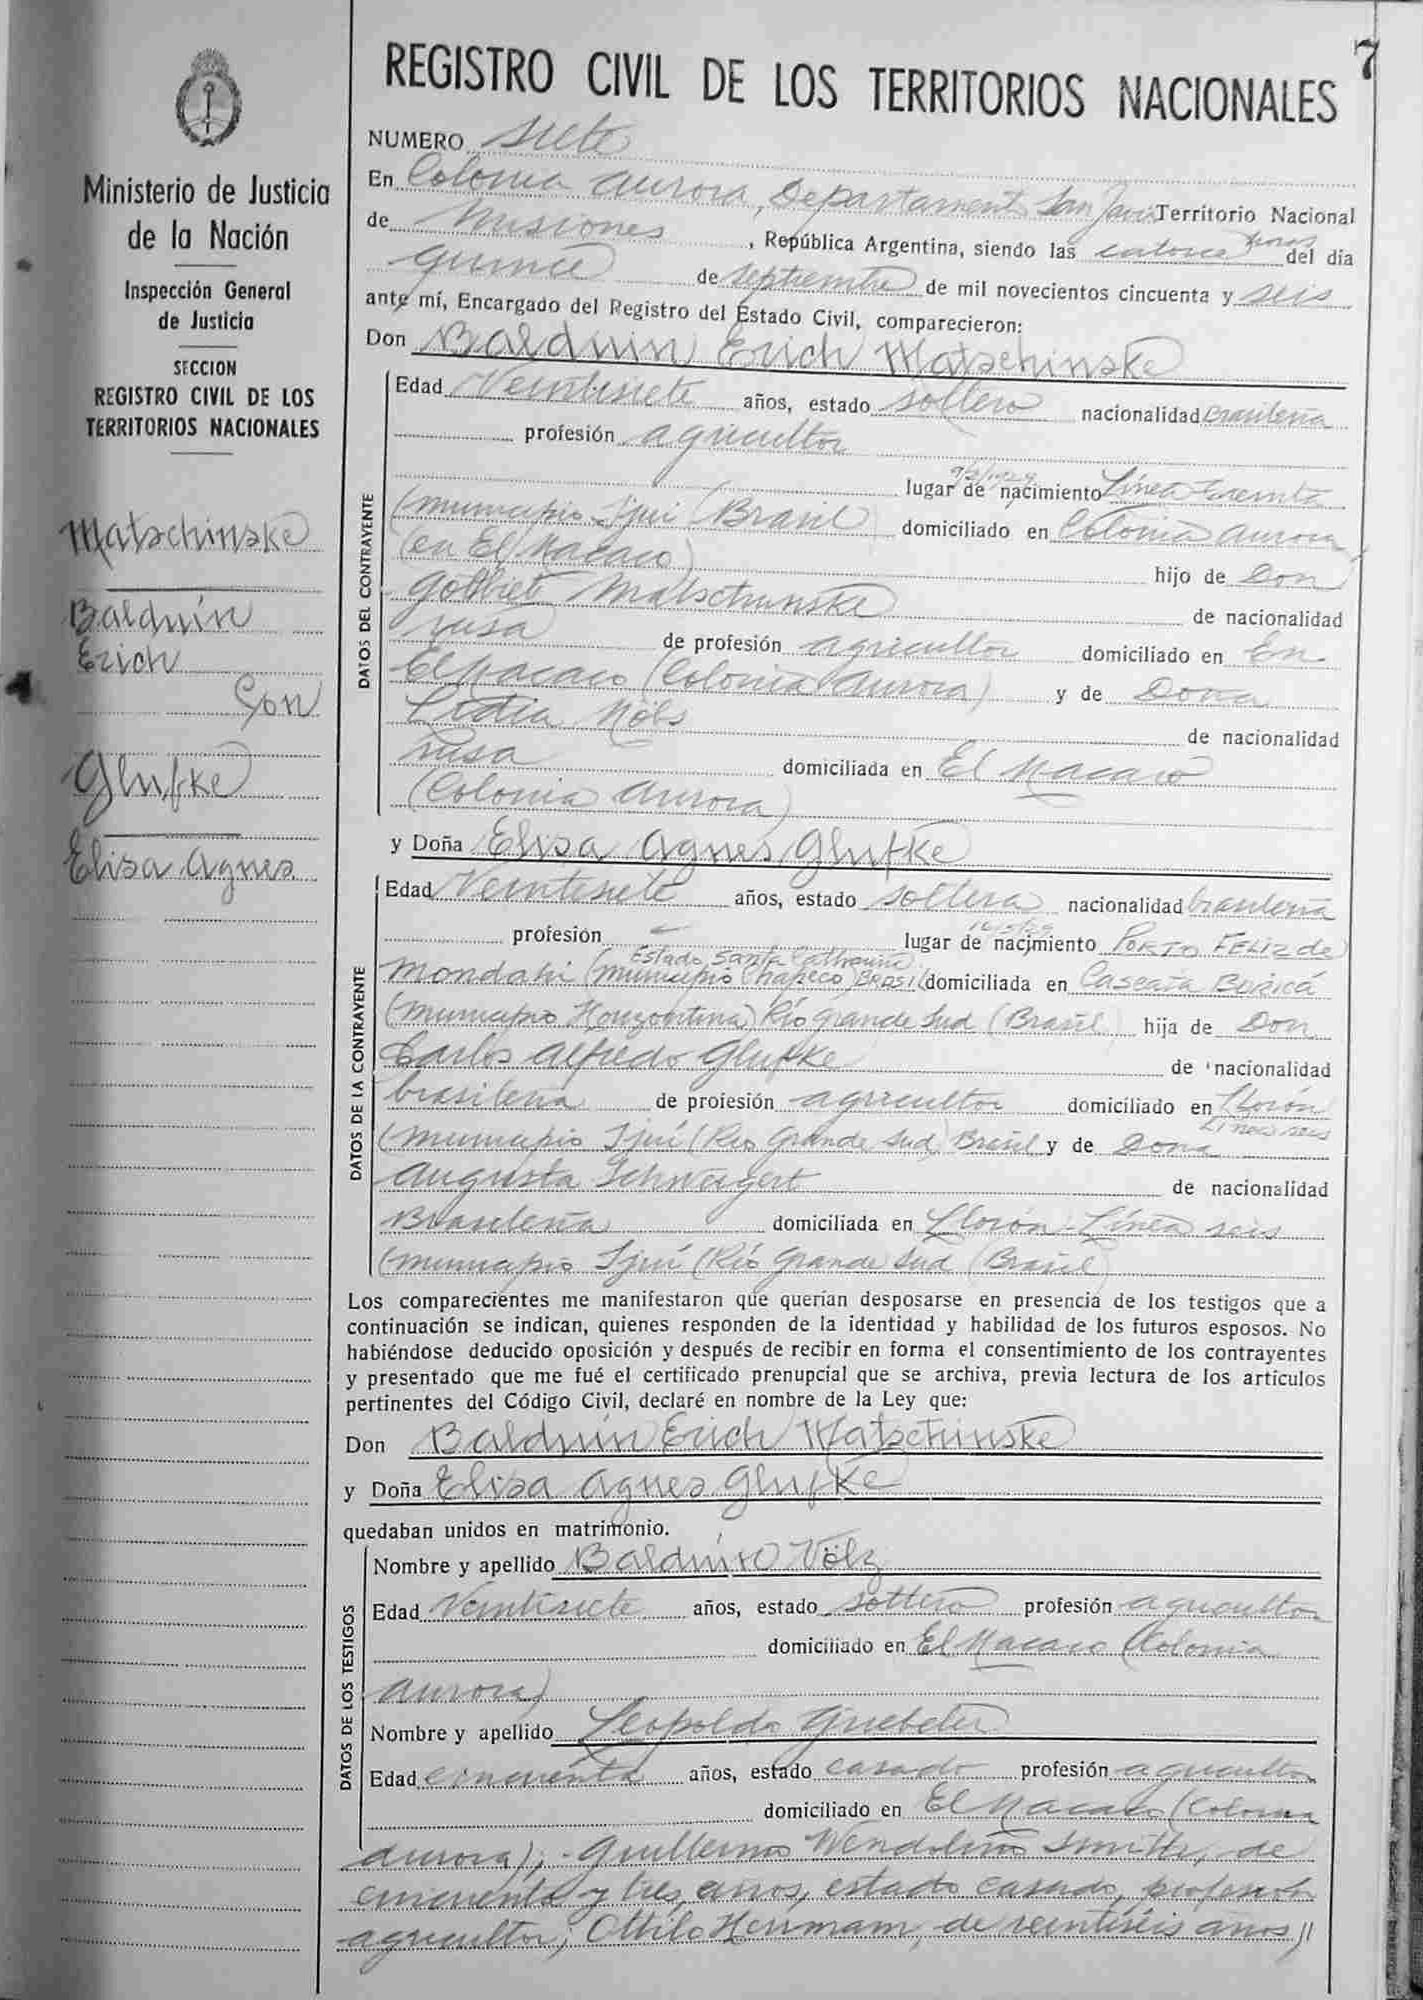 7
REGISTRO CIVIL DE LOS TERRITORIOS NACIONALES
Ministerio de Justicia
de la Nación
Inspección General
de Justicia
SECCION
REGISTRO CIVIL DE LOS
TERRITORIOS NACIONALES
Matschinske
Balduin
Erich
Con
Glufke
Elisa Agnes
NUMERO siete
En Colonia Aurora, Departamento San Javier Territorio Nacional
de Misiones, República Argentina, siendo las catorce horas del día
quince de septiembre de mil novecientos cincuenta y seis
ante mí, Encargado del Registro del Estado Civil, comparecieron:
Don Balduin Erich Matschinske
DATOS DEL CONTRAYENTE
Edad Veintisiete años, estado soltero nacionalidad brasileña
profesión agricultor
9/2/1929
lugar de nacimiento Línea treinta
(municipio Ijui (Brasil) domiciliado en Colonia Aurora
(en El Macaco) hijo de Don
Gottliet Matschinske de nacionalidad
rusa de profesión agricultor domiciliado en En
El Macaco (Colonia Aurora) y de Dona
Lidia Nöls de nacionalidad
rusa domiciliada en El Macaco
(Colonia Aurora)
y Doña Elisa Agnes Glufke
DATOS DE LA CONTRAYENTE
Edad Veintisiete años, estado soltera nacionalidad brasileña
profesión lugar de nacimiento Porto Feliz de
Estado Santa Catharina
Mondahi (municipio Chapeco Brasil domiciliada en Cascata Boricá
(municipio Horizontina) Río Grande Sud (Brasil) hija de Don
Carlos Alfredo Glufke de nacionalidad
brasileña de profesión agricultor domiciliado en Llorón
Línea seis
(municipio Ijuí (Río Grande Sud) Brasil y de Dona
Augusta Schweigert de nacionalidad
Brasileña domiciliada en Llorón-Línea seis
(municipio Ijuí (Río Grande Sud (Brasil)
Los comparecientes me manifestaron que querían desposarse en presencia de los testigos que a
continuación se indican, quienes responden de la identidad y habilidad de los futuros esposos. No
habiéndose deducido oposición y después de recibir en forma el consentimiento de los contrayentes
y presentado que me fué el certificado prenupcial que se archiva, previa lectura de los artículos
pertinentes del Código Civil, declaré en nombre de la Ley que:
Don Balduin Erich Matschinske
y Doña Elisa Agnes Glufke
quedaban unidos en matrimonio.
DATOS DE LOS TESTIGOS
Nombre y apellido Balduino Völz
Edad Veintisiete años, estado soltero profesión agricultor
domiciliado en El Macaco (Colonia
Aurora)
Nombre y apellido Leopoldo
Edad cincuenta años, estado casado profesión agricultor
domiciliado en El Macaco (Colonia
Aurora), Guillermo Wendolino Smith, de
cincuenta y tres años, estado casado, profesión
agricultor, Ottilo Herrmam, de veintiseis años,